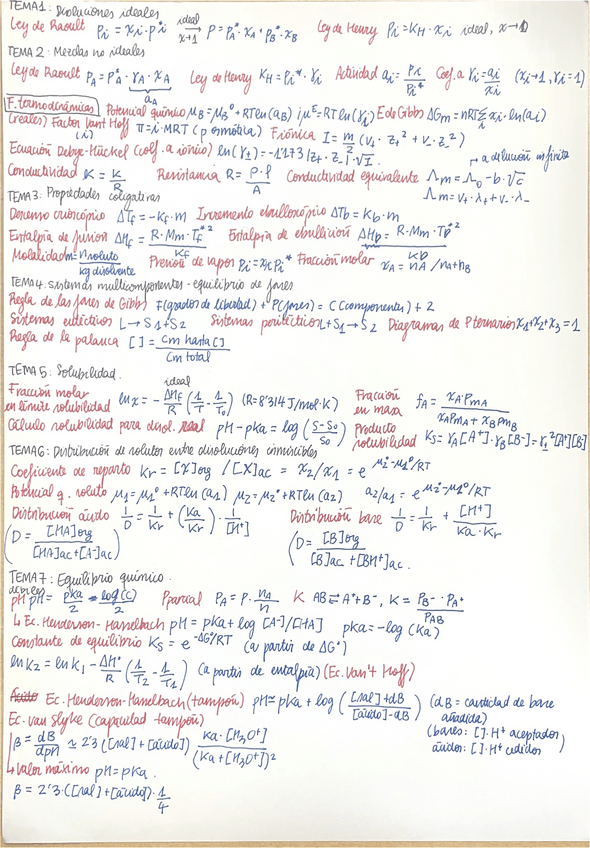 TEMA1: Disoluciones ideales
Ley de Raoult Pi = xi·pi* ideal x→1 P = PA*·xA + PB*·xB Ley de Henry Pi = KH·xi ideal, x→0
TEMA 2: Mezclas no ideales
Ley de Raoult PA = PA*·γA·xA Ley de Henry KH = Pi*·γi Actividad ai = Pi/Pi* Coef. a γi = ai/xi (xi→1, γi=1)
aA
F. termodinámicas Potencial químico μB = μB° + RTln(aB) i μE = RTln(γi) E de Gibbs ΔGm = nRTΣ xi·ln(ai)
(reales) Factor Vant Hoff π = i·MRT (p osmótica) F iónica I = m/2 (V+·Z+² + V-·Z-²)
(i)
Ecuación Debye-Hückel (coef. a iónico) ln(γ±) = -1'173|Z+·Z-|·√I. a dilución infinita
Conductividad K = K/R Resistencia R = ρ·l/A Conductividad equivalente Λm = Λo - b·√c
Λm = V+·λ+ + V-·λ-
TEMA3: Propiedades coligativas
Descenso crioscópico ΔTf = -Kf·m Incremento ebulloscópio ΔTb = Kb·m
Entalpía de fusión ΔHf = R·Mm·Tf*²/Kf Entalpía de ebullición ΔHb = R·Mm·Tb*²/Kb
Molalidad m = nsoluto/kg disolvente Presión de vapor Pi = xi Pi* Fracción molar xA = nA/nA+nB
TEMA4: sistemas multicomponentes - equilibrio de fases
Regla de las fases de Gibbs F(grados de libertad) + P(fases) = C(componentes) + 2
Sistemas eutécticos L→S1+S2 Sistemas peritécticos L+S1→S2 Diagramas de P ternarios x1+x2+x3=1
Regla de la palanca [ ] = cm hasta [ ]/cm total
TEMA 5: Solubilidad.
Fracción molar en límite solubilidad ideal ln x = -ΔHf/R (1/T - 1/To) (R=8'314 J/mol·K) Fracción en masa fA = xA·PmA/xAPmA + xBPmB
Cálculo solubilidad para disol. real pH - pKa = log (S-So/So) Producto solubilidad KS = γA[A+]·γB[B-] = γ±²[A+][B]
TEMA6: Distribución de solutos entre disoluciones inmiscibles
Coeficiente de reparto Kr = [X]org / [X]ac = x2/x1 = e^μ2°-μ1°/RT
Potencial q. soluto μ1 = μ1° + RTln(a1) μ2 = μ2° + RTln(a2) a2/a1 = e^μ2°-μ1°/RT
Distribución ácido 1/D = 1/Kr + (Ka/Kr)·1/[H+] Distribución base 1/D = 1/Kr + [H+]/Ka·Kr
(D = [HA]org/[HA]ac+[A-]ac) (D = [B]org/[B]ac+[BH+]ac.)
TEMA7: Equilibrio químico.
débiles
pH pH = pKa/2 - log(C)/2 Pparcial PA = P·nA/n K AB ⇌ A+ + B-, K = PB-·PA+/PAB
↳ Ec. Henderson-Hasselbach pH = pKa + log [A-]/[HA] pKa = -log (Ka)
Constante de equilibrio KS = e^-ΔG°/RT (a partir de ΔG°)
ln K2 = ln K1 - ΔH°/R (1/T2 - 1/T1) (a partir de entalpía) (Ec. Van't Hoff)
Ec. Henderson-Hasselbach (tampón) pH = pKa + log ([sal]+dB/[ácido]-dB) (dB = cantidad de base añadida)
Ec. van Slyke (capacidad tampón) (bases: [ ]·H+ aceptados
ácidos: [ ]·H+ cedidos)
β = dB/dpH ≃ 2'3 ([sal]+[ácido]) Ka·[H3O+]/(Ka+[H3O+])²
↳ Valor máximo pH = pKa.
β = 2'3·([sal]+[ácido])·1/4